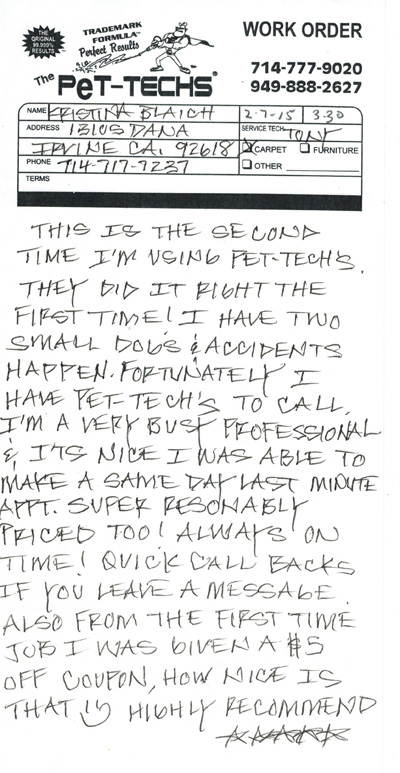 THE ORIGINAL 99.999% RESULTS
TRADEMARK
FORMULA™
Perfect Results
The PeT-TECHS®
WORK ORDER
714-777-9020
949-888-2627
NAME KRISTINA BLAICH 2-7-15 3:30
ADDRESS 1 BIOS DANA SERVICE TECH. TONY
IRVINE CA. 92618 CARPET FURNITURE
PHONE 714-717-7237 OTHER
TERMS
THIS IS THE SECOND
TIME I'M USING PET-TECH'S.
THEY DID IT RIGHT THE
FIRST TIME! I HAVE TWO
SMALL DOGS & ACCIDENTS
HAPPEN. FORTUNATELY I
HAVE PET-TECH'S TO CALL.
I'M A VERY BUSY PROFESSIONAL
& ITS NICE I WAS ABLE TO
MAKE A SAME DAY LAST MINUTE
APPT. SUPER RESONABLY
PRICED TOO! ALWAYS ON
TIME! QUICK CALL BACKS
IF YOU LEAVE A MESSAGE.
ALSO FROM THE FIRST TIME
JOB I WAS GIVEN A $5
OFF COUPON, HOW NICE IS
THAT HIGHLY RECOMMEND